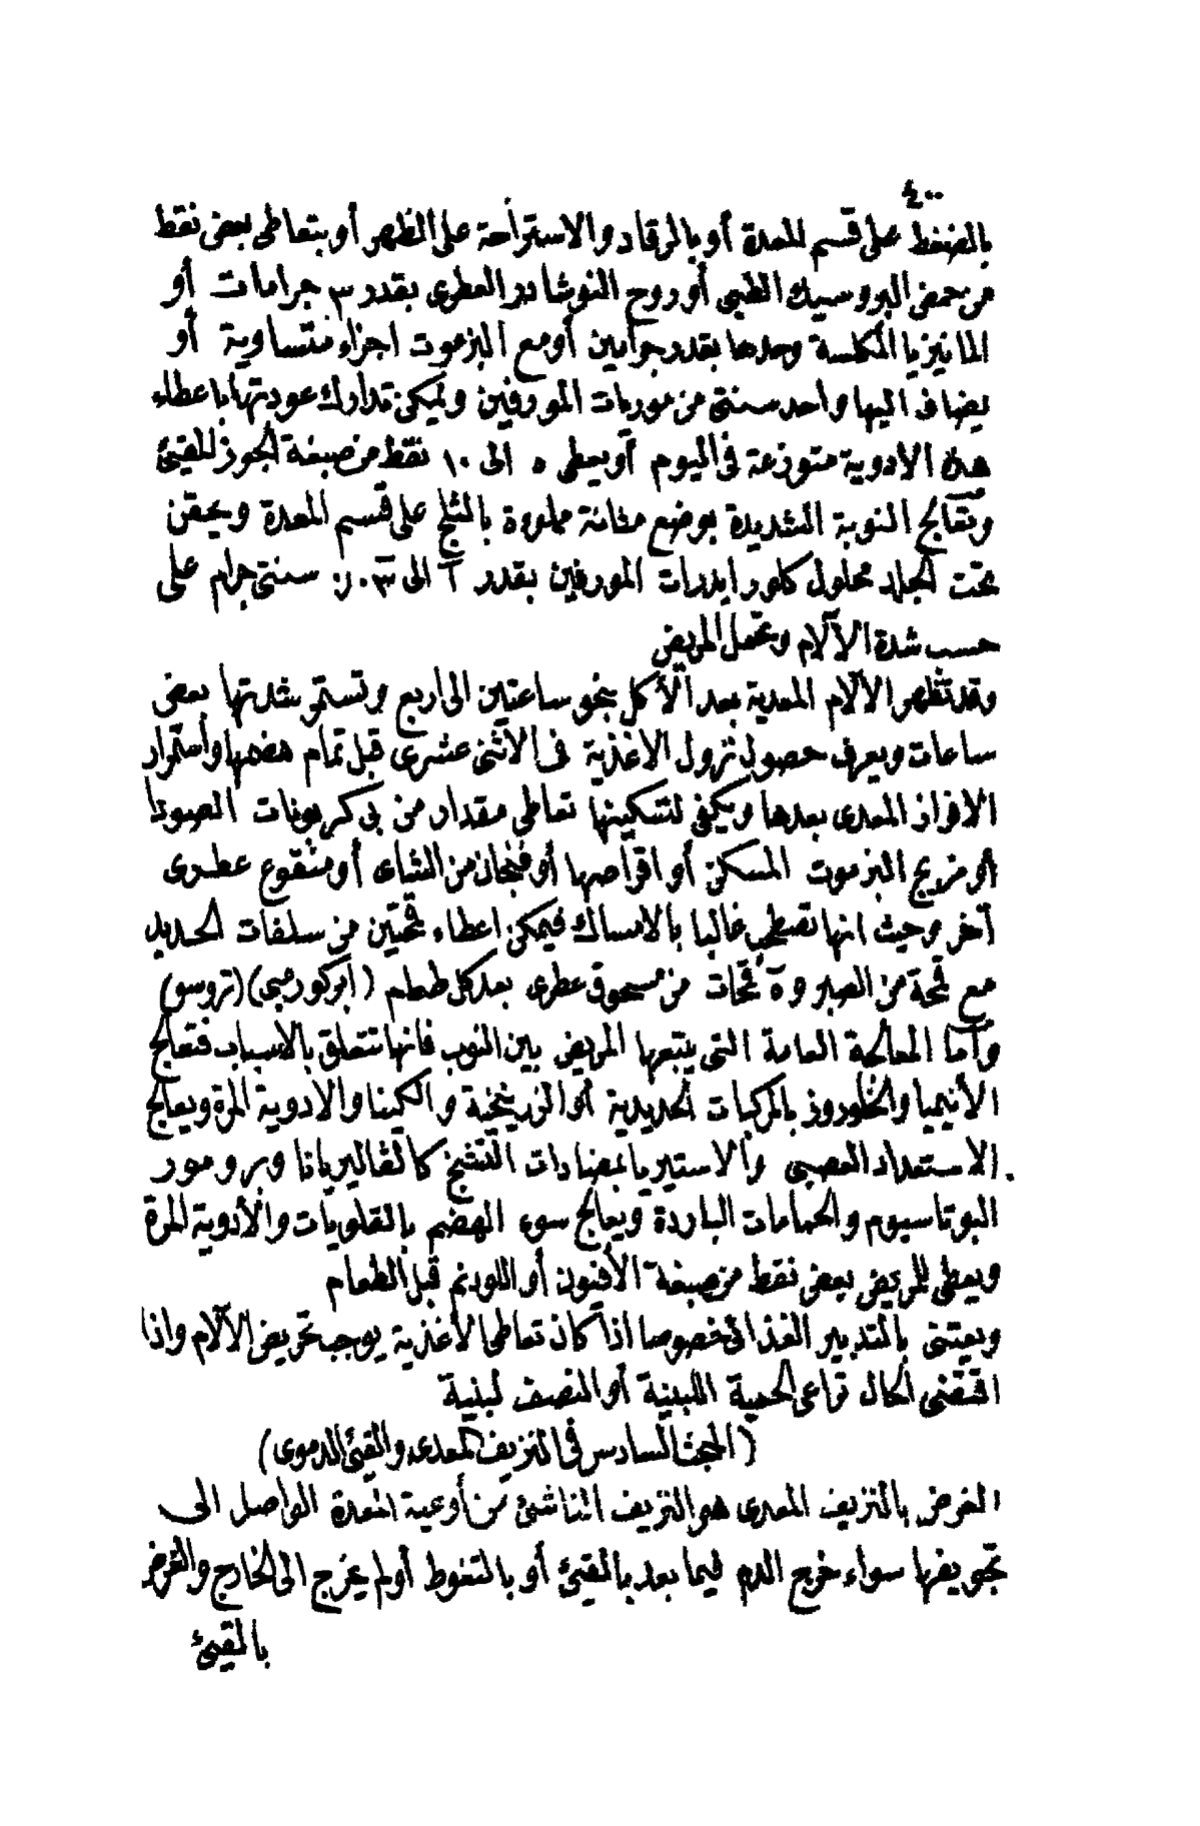 ٤٠٠
بالضغط على قسم المعدة أو بالرقاد والاستراحة على الظهر أو بتعاطى بعض نقط
من حمض البروسيك الطبى أو روح النوشادر العطرى بقدر ٣ جرامات أو
المانيزيا المكلسة وحدها بقدر جرامين أو مع البزموت اجزاء متساوية أو
يضاف اليها واحد سنتى من موريات المورفين ويمكن تدارك عودتها باعطاء
هذه الادوية متوزعة فى اليوم أو يعطى ٥ الى ١٠ نقط من صبغة الجوز المقيئ
وتعالج النوبة الشديدة بوضع مثانة مملوءة بالثلج على قسم المعدة ويحقن
تحت الجلد محلول كلور ايدرات المورفين بقدر الى سنتى جرام على
حسب شدة الآلام وتحمل المريض
وقد تظهر الآلام المعدية بعد الأكل بنحو ساعتين الى اربع وتستمر شدتها بعض
ساعات ويعرف حصول نزول الاغذية فى الاثنى عشرى قبل تمام هضمها وأستمرار
الافراز المعدى بعدها ويكفى لتسكينها تعاطى مقدار من بى كربونات الصودا
أو مزيج البزموت المسكن أو اقراصها أو فنجان من الشاى أو منقوع عطرى
آخر وحيث انها تصطحب غالبا بالامساك فيمكن اعطاء قمحتين من سلفات الحديد
مع قمحة من الصبر و ٥ قمحات من مسحوق عطرى بعد كل طعام (ابركورمبى) (تروسو)
وأما المعالجة العامة التى يتبعها المريض بين النوب فانها تتعلق بالاسباب فتعالج
الأنيميا والخلوروز بالمركبات الحديدية أو الزرنيخية والكينا والادوية المرة ويعالج
الاستعداد العصبى والاستيريا بمضادات التشنج كالڤاليريانا وبرومور
البوتاسيوم والحمامات الباردة ويعالج سوء الهضم بالقلويات والأدوية المرة
ويعطى للمريض بعض نقط من صبغة الأفيون أو اللودنم قبل الطعام
ويعتنى بالتدبير الغذائى خصوصا اذا كان تعاطى الأغذية يوجب تحريض الآلام واذا
اقتضى الحال تراعى الحمية اللبنية أو النصف لبنية
(المبحث السادس فى النزيف المعدى والقيئ الدموى)
الغرض بالنزيف المعدى هو النزيف الناشئ من أوعية المعدة الواصل الى
تجويفها سواء خرج الدم فيما بعد بالقيئ أو بالتغوط أو لم يخرج الى الخارج والغرض
بالقيئ